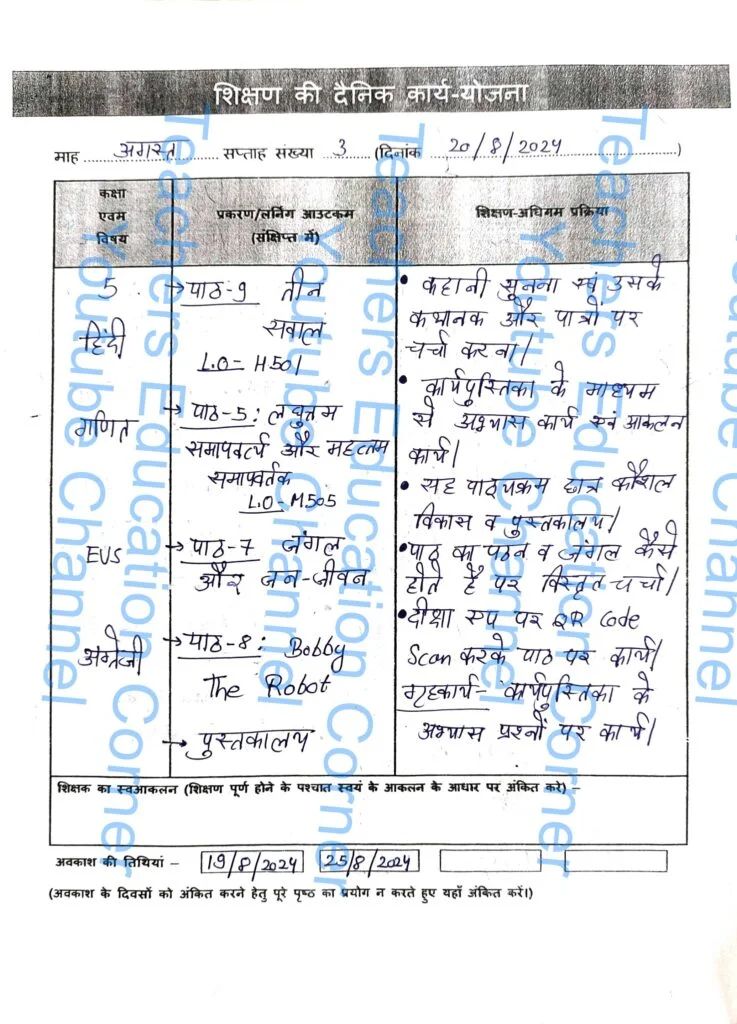 शिक्षण की दैनिक कार्य-योजना
माह अगस्त सप्ताह संख्या 3 (दिनांक 20/8/2024)
कक्षा
एवम
विषय
प्रकरण/लर्निंग आउटकम
(संक्षिप्त में)
शिक्षण-अधिगम प्रक्रिया
5
हिंदी
→ पाठ-9 तीन
सवाल
L.O- H501
गणित
→ पाठ-5: लघुत्तम
समापवर्त्य और महत्तम
समापवर्तक
L.O-M505
EVS
→ पाठ-7 जंगल
और जन-जीवन
अंग्रेजी
→ पाठ-8: Bobby
The Robot
→ पुस्तकालय
• कहानी सुनना एवं उसके
कथानक और पात्रों पर
चर्चा करना।
• कार्यपुस्तिका के माध्यम
से अभ्यास कार्य एवं आकलन
कार्य।
• सह पाठ्यक्रम छात्र कौशल
विकास व पुस्तकालय।
• पाठ का पठन व जंगल कैसे
होते है पर विस्तृत चर्चा।
• दीक्षा एप पर QR Code
Scan करके पाठ पर कार्य।
गृहकार्य- कार्यपुस्तिका के
अभ्यास प्रश्नों पर कार्य।
शिक्षक का स्वआकलन (शिक्षण पूर्ण होने के पश्चात स्वयं के आकलन के आधार पर अंकित करे) –
अवकाश की तिथियां – 19/8/2024 25/8/2024
(अवकाश के दिवसों को अंकित करने हेतु पूरे पृष्ठ का प्रयोग न करते हुए यहाँ अंकित करें।)
Teachers Education Corner
Youtube Channel
Teachers Education Corner
Youtube Channel
Teachers Education Corner
Youtube Channel